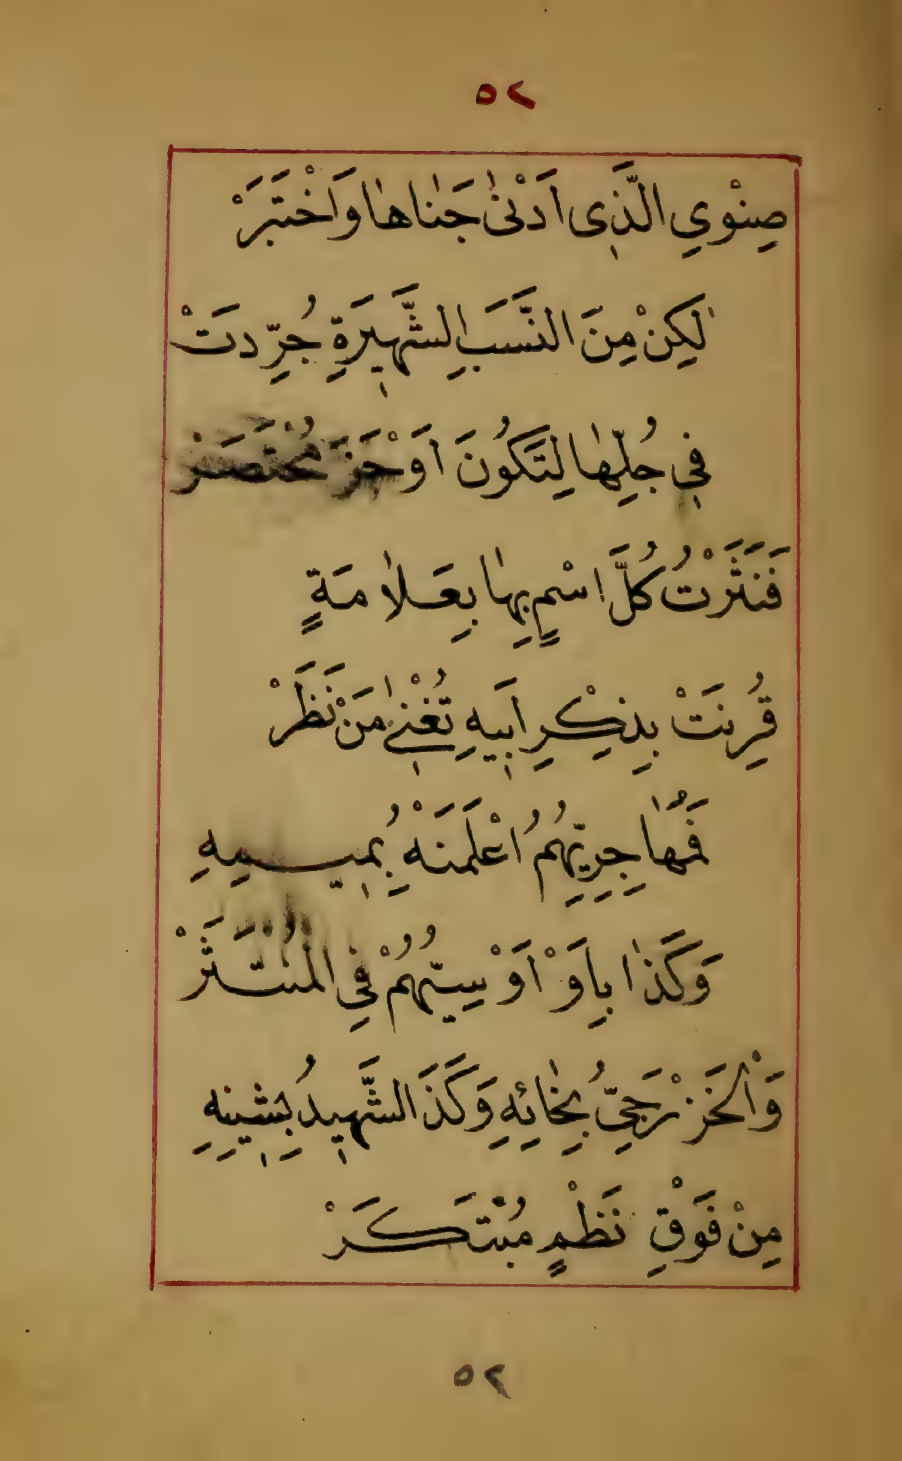 ٥٢
صِنْوِي الَّذِى اَدْنىٰ جَنٰاهٰا وَاَخْتَبَرْ
لٰكِنْ مِنَ النَّسَبِ الشَّهِيرَةِ جُرِّدتَْ
فِي جُلِّهٰا لِتَكُونَ اَوْجَزَ مُخْتَصَرْ
فَنَثَرْتُ كُلَّ اسْمٍ بِهٰا بِعَلٰامَةٍ
قُرِنَتْ بِذِكْرِ اَبِيهِ تُغْنىٰ مَنْ نَظَرْ
فَمُهٰاجِرِيّهُمُ اعْلَمَنْهُ بِمِيمِهِ
وَكَذٰا بِاَوْ اَوْسِيّهُمْ فِي الْمُنْتَثَرْ
وَالْخَزْرَجِيُّ بِخٰائِهِ وَكَذَ الشَّهِيدُ بِشِينِهِ
مِنْ فَوْقِ نَظْمٍ مُبْتَكَرْ
٥٢